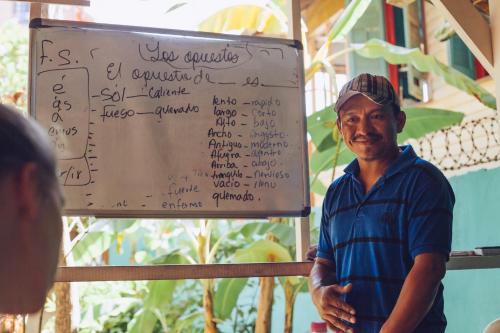 F.S.
(Los opuestos)
El opuesto de ___ es ___
é
és
a
emos
n
- Sol — caliente
- fuego — quemado
lento — rapido
largo — corto
Alto — bajo
Ancho — angosto
Antiguo — moderno
Afuera — adentro
Arriba — abajo
tranquilo — nervioso
vacio — llenu
quemado.
fuente
enfermo